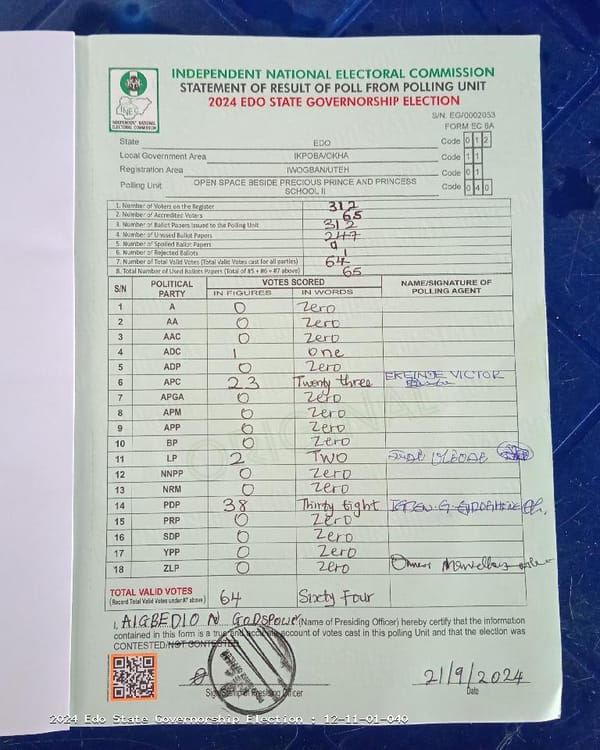 INDEPENDENT NATIONAL ELECTORAL COMMISSION
STATEMENT OF RESULT OF POLL FROM POLLING UNIT
2024 EDO STATE GOVERNORSHIP ELECTION
INEC
INDEPENDENT NATIONAL
ELECTORAL COMMISSION
S/N. EG/0002053
FORM EC 8A
State EDO Code 0 1 2
Local Government Area IKPOBA/OKHA Code 1 1
Registration Area IWOGBAN/UTEH Code 0 1
Polling Unit OPEN SPACE BESIDE PRECIOUS PRINCE AND PRINCESS SCHOOL II Code 0 4 0
1. Number of Voters on the Register 312
2. Number of Accredited Voters 65
3. Number of Ballot Papers Issued to the Polling Unit 312
4. Number of Unused Ballot Papers 247
5. Number of Spoiled Ballot Papers 0
6. Number of Rejected Ballots 1
7. Number of Total Valid Votes (Total Valid Votes cast for all parties) 64
8. Total Number of Used Ballots Papers (Total of #5 + #6 + #7 above) 65
S/N POLITICAL PARTY VOTES SCORED NAME/SIGNATURE OF POLLING AGENT
IN FIGURES IN WORDS
1 A 0 Zero
2 AA 0 Zero
3 AAC 0 Zero
4 ADC 1 One
5 ADP 0 Zero
6 APC 23 Twenty three VICTOR
7 APGA 0 Zero
8 APM 0 Zero
9 APP 0 Zero
10 BP 0 Zero
11 LP 2 Two
12 NNPP 0 Zero
13 NRM 0 Zero
14 PDP 38 Thirty Eight
15 PRP 0 Zero
16 SDP 0 Zero
17 YPP 0 Zero
18 ZLP 0 Zero
ORIGINAL
TOTAL VALID VOTES
(Record Total Valid Votes under #7 above) 64 Sixty Four
I, AIGBEDIO N. GODSPOWER (Name of Presiding Officer) hereby certify that the information
contained in this form is a true and accurate account of votes cast in this polling Unit and that the election was
CONTESTED/NOT CONTESTED
21/9/2024
Sign/Stamp of Presiding Officer Date
2024 Edo State Governorship Election : 12-11-01-040